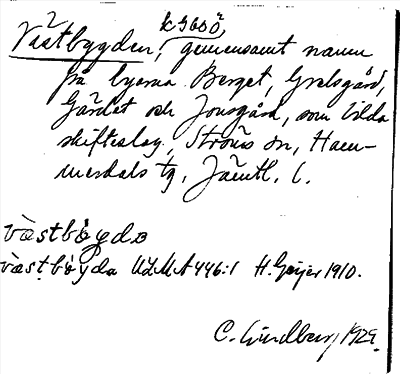 k 3600,
Västbygden, gemensamt namn
på byarna Berget, Grelsgård,
Gärdet och Jonsgård, som bilda
skifteslag, Ströms sn, Ham-
merdals tg, Jämtl. l.
våstbøygda
våstbøygda ULMA 446:1 H. Geijer 1910.
C. Lindberg 1929.